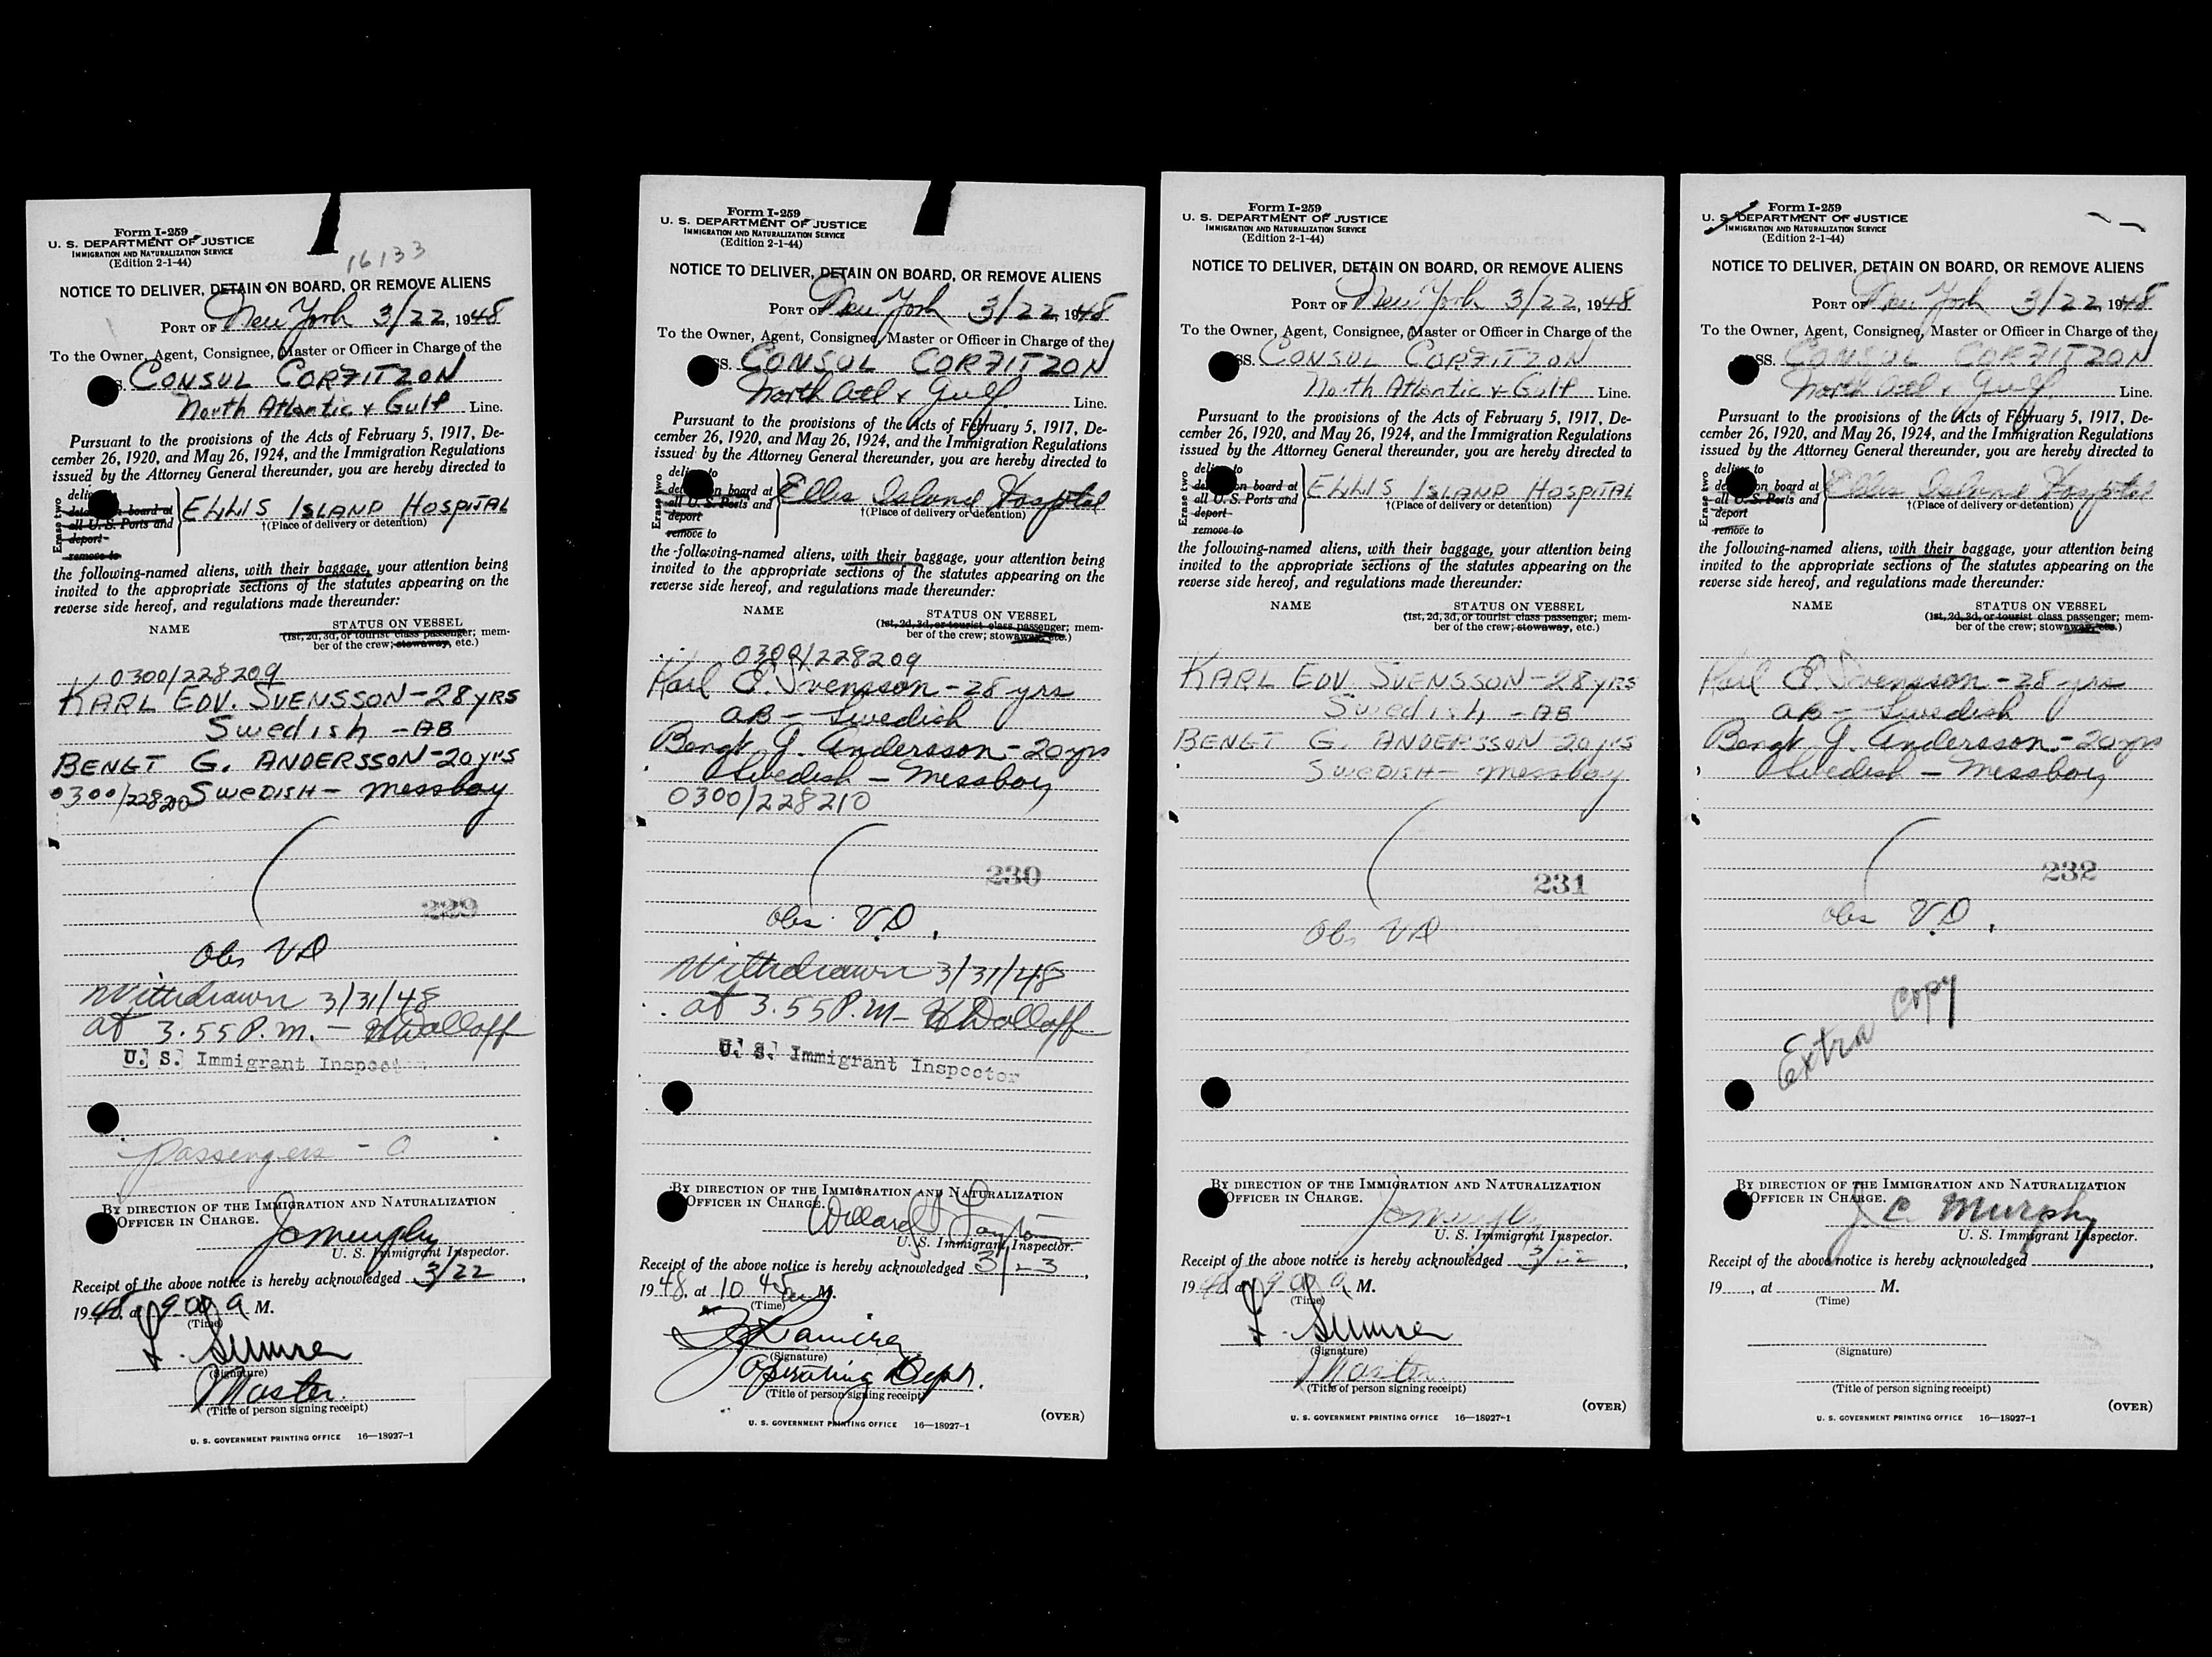 Form I-259
U. S. DEPARTMENT OF JUSTICE
IMMIGRATION AND NATURALIZATION SERVICE
(Edition 2-1-44)
16133
NOTICE TO DELIVER, DETAIN ON BOARD, OR REMOVE ALIENS
PORT OF New York 3/22, 1948
To the Owner, Agent, Consignee, Master or Officer in Charge of the
CONSUL CORFITZON
North Atlantic & Gulf Line.
Pursuant to the provisions of the Acts of February 5, 1917, De-
cember 26, 1920, and May 26, 1924, and the Immigration Regulations
issued by the Attorney General thereunder, you are hereby directed to
Erase two
on board at
all U. S. Ports and
deport
remove to
ELLIS ISLAND HOSPITAL
†(Place of delivery or detention)
the following-named aliens, with their baggage, your attention being
invited to the appropriate sections of the statutes appearing on the
reverse side hereof, and regulations made thereunder:
NAME
STATUS ON VESSEL
(1st, 2d, 3d, or tourist class passenger; mem-
ber of the crew; stowaway, etc.)
0300/228209
KARL EDV. SVENSSON - 28 YRS
Swedish - AB
BENGT G. ANDERSSON - 20 yrs
0300/228210 SWEDISH - messboy
229
Obs VD
Withdrawn 3/31/48
at 3.55 P.m. -
U. S. Immigrant Inspector
Passengers - 0
BY DIRECTION OF THE IMMIGRATION AND NATURALIZATION
OFFICER IN CHARGE.
JC Murphy
U. S. Immigrant Inspector.
Receipt of the above notice is hereby acknowledged 3/22,
1948, at 9 00 a M.
(Time)
(Signature)
Master.
(Title of person signing receipt)
U. S. GOVERNMENT PRINTING OFFICE 16—18927-1
Form I-259
U. S. DEPARTMENT OF JUSTICE
IMMIGRATION AND NATURALIZATION SERVICE
(Edition 2-1-44)
NOTICE TO DELIVER, DETAIN ON BOARD, OR REMOVE ALIENS
PORT OF New York 3/22, 1948
To the Owner, Agent, Consignee, Master or Officer in Charge of the
SS. CONSUL CORFITZON
North Atl & Gulf. Line.
Pursuant to the provisions of the Acts of February 5, 1917, De-
cember 26, 1920, and May 26, 1924, and the Immigration Regulations
issued by the Attorney General thereunder, you are hereby directed to
Erase two
to
on board at
all U. S. Ports and
deport
remove to
Ellis Island Hospital
†(Place of delivery or detention)
the following-named aliens, with their baggage, your attention being
invited to the appropriate sections of the statutes appearing on the
reverse side hereof, and regulations made thereunder:
NAME
STATUS ON VESSEL
(1st, 2d, 3d, or tourist class passenger; mem-
ber of the crew; stowaway, etc.)
0300/228209
Karl E. Svensson - 28 yrs
AB - Swedish
Bengt G. Andersson - 20 yrs
Swedish - Messboy
0300/228210
230
Obs V.D.
Withdrawn 3/31/48
at 3.55 P.m -
U. S. Immigrant Inspector
BY DIRECTION OF THE IMMIGRATION AND NATURALIZATION
OFFICER IN CHARGE.
Willard
U. S. Immigrant Inspector.
Receipt of the above notice is hereby acknowledged 3/23,
1948, at 10 45 a M.
(Time)
Ramirez
(Signature)
Operating Dept.
(Title of person signing receipt)
(OVER)
U. S. GOVERNMENT PRINTING OFFICE 16—18927-1
Form I-259
U. S. DEPARTMENT OF JUSTICE
IMMIGRATION AND NATURALIZATION SERVICE
(Edition 2-1-44)
NOTICE TO DELIVER, DETAIN ON BOARD, OR REMOVE ALIENS
PORT OF New York 3/22, 1948
To the Owner, Agent, Consignee, Master or Officer in Charge of the
SS. CONSUL CORFITZON
North Atlantic & Gulf Line.
Pursuant to the provisions of the Acts of February 5, 1917, De-
cember 26, 1920, and May 26, 1924, and the Immigration Regulations
issued by the Attorney General thereunder, you are hereby directed to
Erase two
to
on board at
all U. S. Ports and
deport
remove to
ELLIS ISLAND HOSPITAL
†(Place of delivery or detention)
the following-named aliens, with their baggage, your attention being
invited to the appropriate sections of the statutes appearing on the
reverse side hereof, and regulations made thereunder:
NAME
STATUS ON VESSEL
(1st, 2d, 3d, or tourist class passenger; mem-
ber of the crew; stowaway, etc.)
KARL EDV. SVENSSON - 28 YRS
Swedish - AB
BENGT G. ANDERSSON 20 yrs
SWEDISH - messboy
231
Obs VD
BY DIRECTION OF THE IMMIGRATION AND NATURALIZATION
OFFICER IN CHARGE.
JC Murphy
U. S. Immigrant Inspector.
Receipt of the above notice is hereby acknowledged 3/22,
1948, at 9 00 a M.
(Time)
(Signature)
Master.
(Title of person signing receipt)
(OVER)
U. S. GOVERNMENT PRINTING OFFICE 16—18927-1
Form I-259
U. S. DEPARTMENT OF JUSTICE
IMMIGRATION AND NATURALIZATION SERVICE
(Edition 2-1-44)
NOTICE TO DELIVER, DETAIN ON BOARD, OR REMOVE ALIENS
PORT OF New York 3/22, 1948
To the Owner, Agent, Consignee, Master or Officer in Charge of the
SS. CONSUL CORFITZON
North Atl & Gulf. Line.
Pursuant to the provisions of the Acts of February 5, 1917, De-
cember 26, 1920, and May 26, 1924, and the Immigration Regulations
issued by the Attorney General thereunder, you are hereby directed to
Erase two
to
on board at
all U. S. Ports and
deport
remove to
Ellis Island Hospital
†(Place of delivery or detention)
the following-named aliens, with their baggage, your attention being
invited to the appropriate sections of the statutes appearing on the
reverse side hereof, and regulations made thereunder:
NAME
STATUS ON VESSEL
(1st, 2d, 3d, or tourist class passenger; mem-
ber of the crew; stowaway, etc.)
Karl E. Svensson - 28 yrs
AB - Swedish
Bengt G. Andersson - 20 yrs
Swedish - Messboy
232
Obs V.D.
Extra Copy
BY DIRECTION OF THE IMMIGRATION AND NATURALIZATION
OFFICER IN CHARGE.
J C Murphy
U. S. Immigrant Inspector.
Receipt of the above notice is hereby acknowledged
19, at M.
(Time)
(Signature)
(Title of person signing receipt)
(OVER)
U. S. GOVERNMENT PRINTING OFFICE 16—18927-1